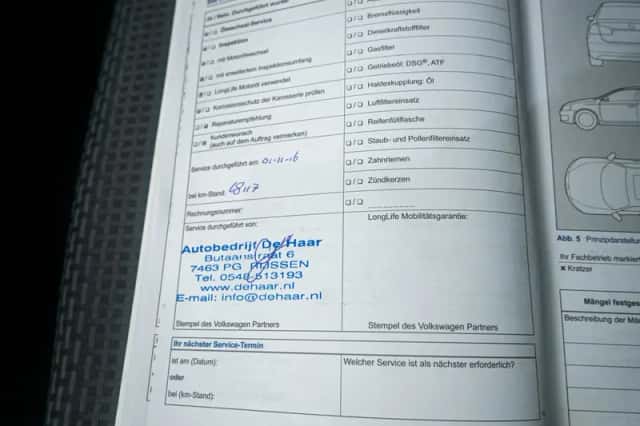 Ja / Nein: Durchgeführt wurde
❑ / ❑ Ölwechsel-Service
❑ / ❑ Inspektion
❑ / ❑ mit Motorölwechsel
❑ / ❑ mit erweitertem Inspektionsumfang
❑ / ❑ LongLife Motoröl verwendet
❑ / ❑ Korrosionsschutz der Karosserie prüfen
❑ / ❑ Reparaturempfehlung
❑ / ❑ Kundenwunsch
(auch auf dem Auftrag vermerken)
Service durchgeführt am: 01-11-16
bei km-Stand:
Rechnungsnummer:
Service durchgeführt von:
Autobedrijf De Haar
Butaanstraat 6
7463 PG RIJSSEN
Tel. 0548-513193
www.dehaar.nl
E-mail: info@dehaar.nl
Stempel des Volkswagen Partners
❑ / ❑ Bremsflüssigkeit
❑ / ❑ Dieselkraftstofffilter
❑ / ❑ Gasfilter
❑ / ❑ Getriebeöl: DSG®, ATF
❑ / ❑ Haldexkupplung: Öl
❑ / ❑ Luftfiltereinsatz
❑ / ❑ Reifenfüllflasche
❑ / ❑ Staub- und Pollenfiltereinsatz
❑ / ❑ Zahnriemen
❑ / ❑ Zündkerzen
❑ / ❑ __________
LongLife Mobilitätsgarantie:
Stempel des Volkswagen Partners
Ihr nächster Service-Termin
ist am (Datum):
oder
bei (km-Stand):
Welcher Service ist als nächster erforderlich?
Abb. 5 Prinzipdarstellu
Ihr Fachbetrieb markiert
✖ Kratzer
Mängel festges
Beschreibung der Mä